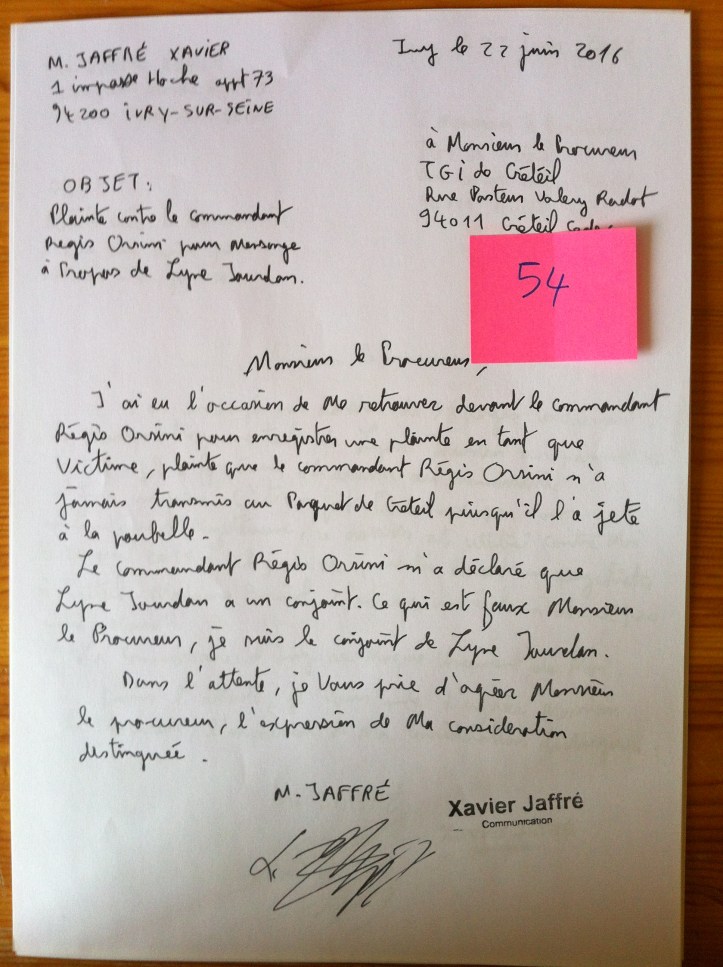 M. JAFFRÉ XAVIER
1 impasse Hoche appt 73
94200 IVRY-SUR-SEINE
Ivry le 22 juin 2016
à Monsieur le Procureur
TGI de Créteil
Rue Pasteur Valery Radot
94011 Créteil Cedex
OBJET:
Plainte contre le commandant
Régis Orsini pour mensonge
à Propos de Lyne Jourdan.
54
Monsieur le Procureur,
J'ai eu l'occasion de me retrouver devant le commandant
Régis Orsini pour enregistrer une plainte en tant que
victime, plainte que le commandant Régis Orsini n'a
jamais transmis au Parquet de Créteil puisqu'il l'a jeté
à la poubelle.
Le commandant Régis Orsini m'a déclaré que
Jourdan a un conjoint. Ce qui est faux Monsieur
le Procureur, je suis le conjoint de Jourdan.
Dans l'attente, je Vous prie d'agréer Monsieur
le procureur, l'expression de Ma consideration
distinguée.
M. JAFFRÉ
Xavier Jaffré
Communication